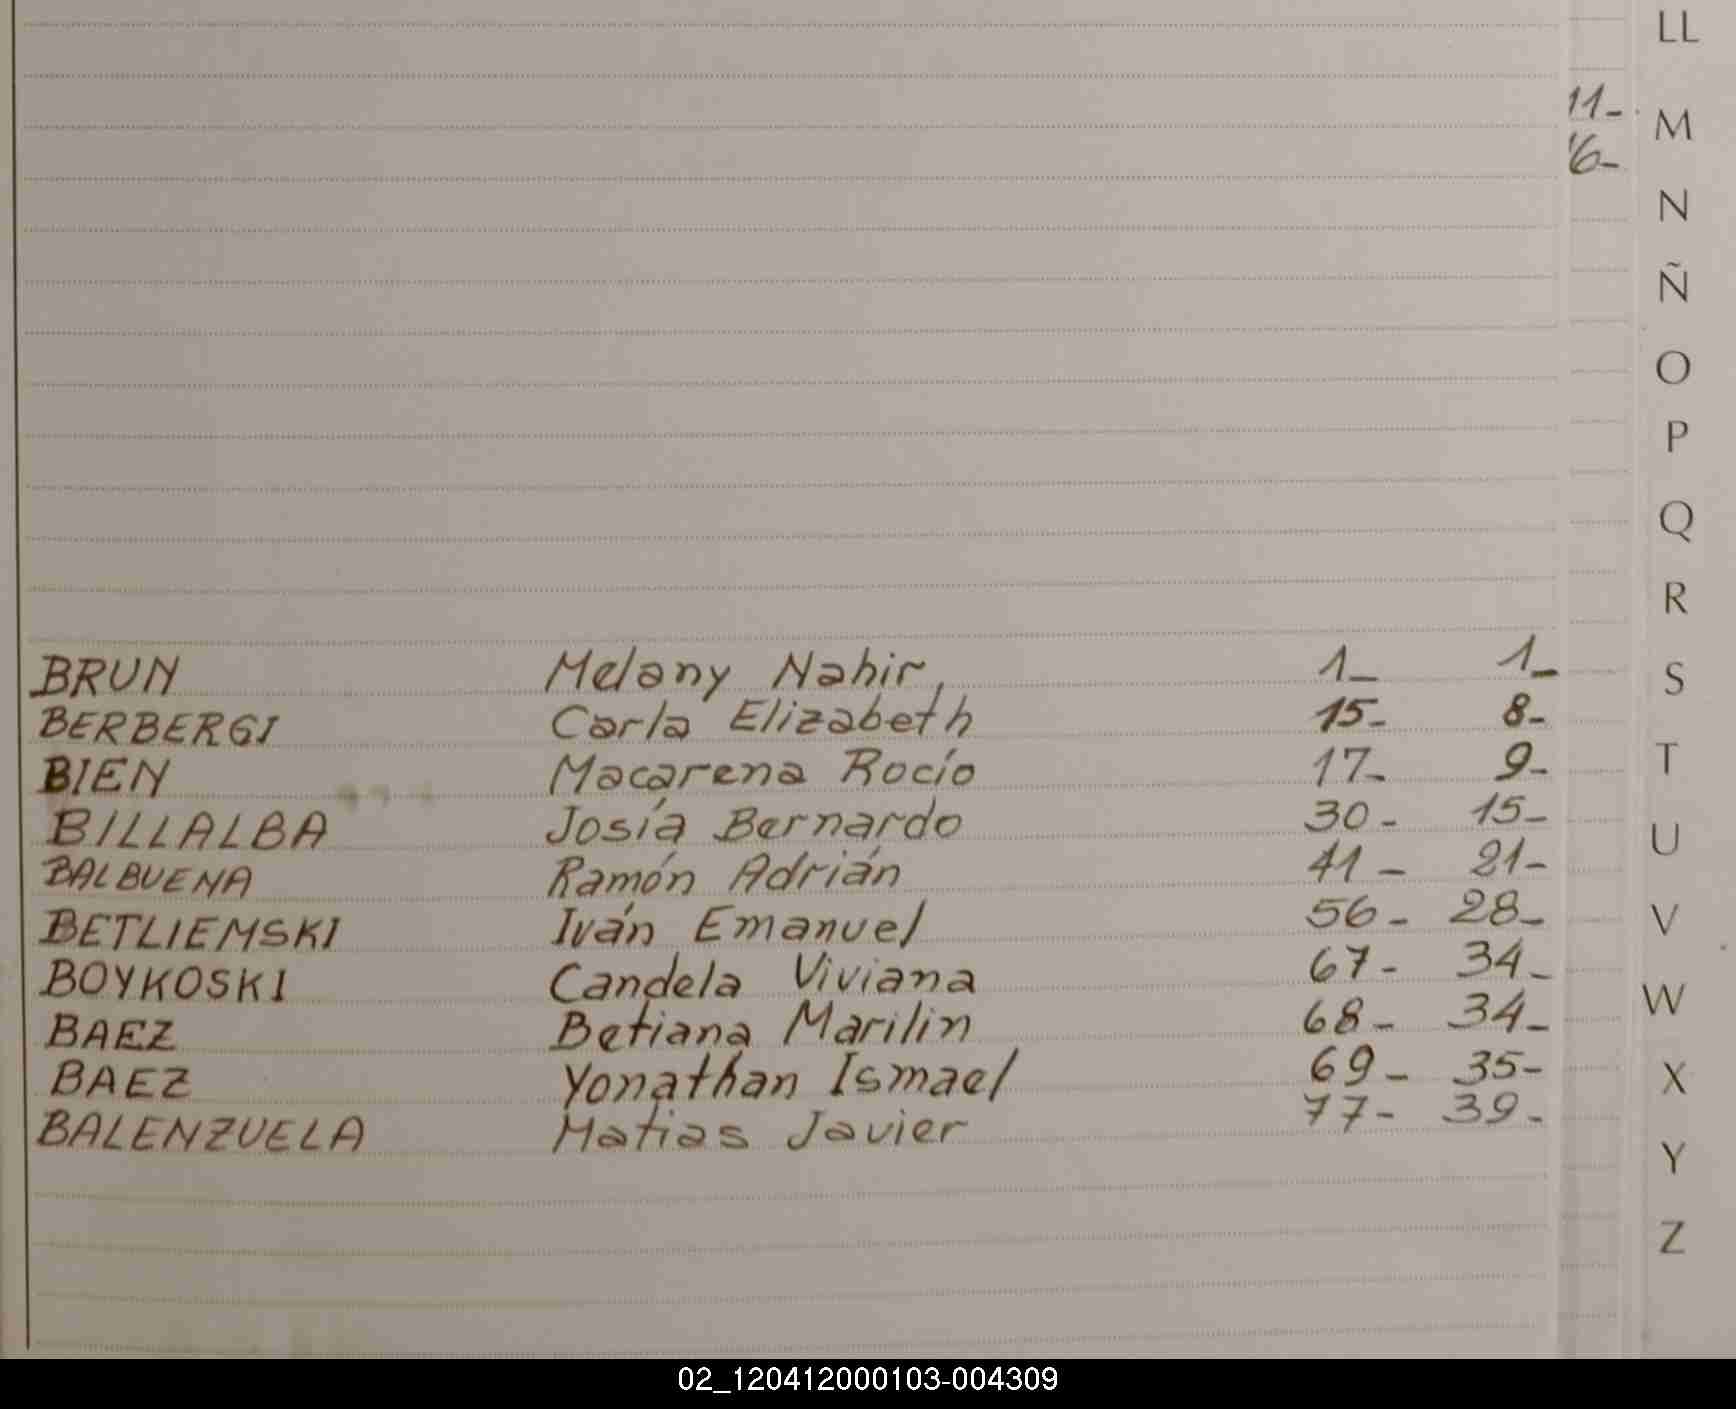 LL
11-
M
6-
N
Ñ
O
P
Q
R
BRUN Melany Nahir, 1- 1-
S
BERBERGI Carla Elizabeth 15- 8-
BIEN Macarena Rocío 17- 9-
T
BILLALBA Josía Bernardo 30- 15-
U
BALBUENA Ramón Adrián 41- 21-
BETLIEMSKI Iván Emanuel 56- 28-
V
BOYKOSKI Candela Viviana 67- 34-
W
BAEZ Betiana Marilin 68- 34-
BAEZ Yonathan Ismael 69- 35-
X
BALENZUELA Matias Javier 77- 39-
Y
Z
02_120412000103-004309